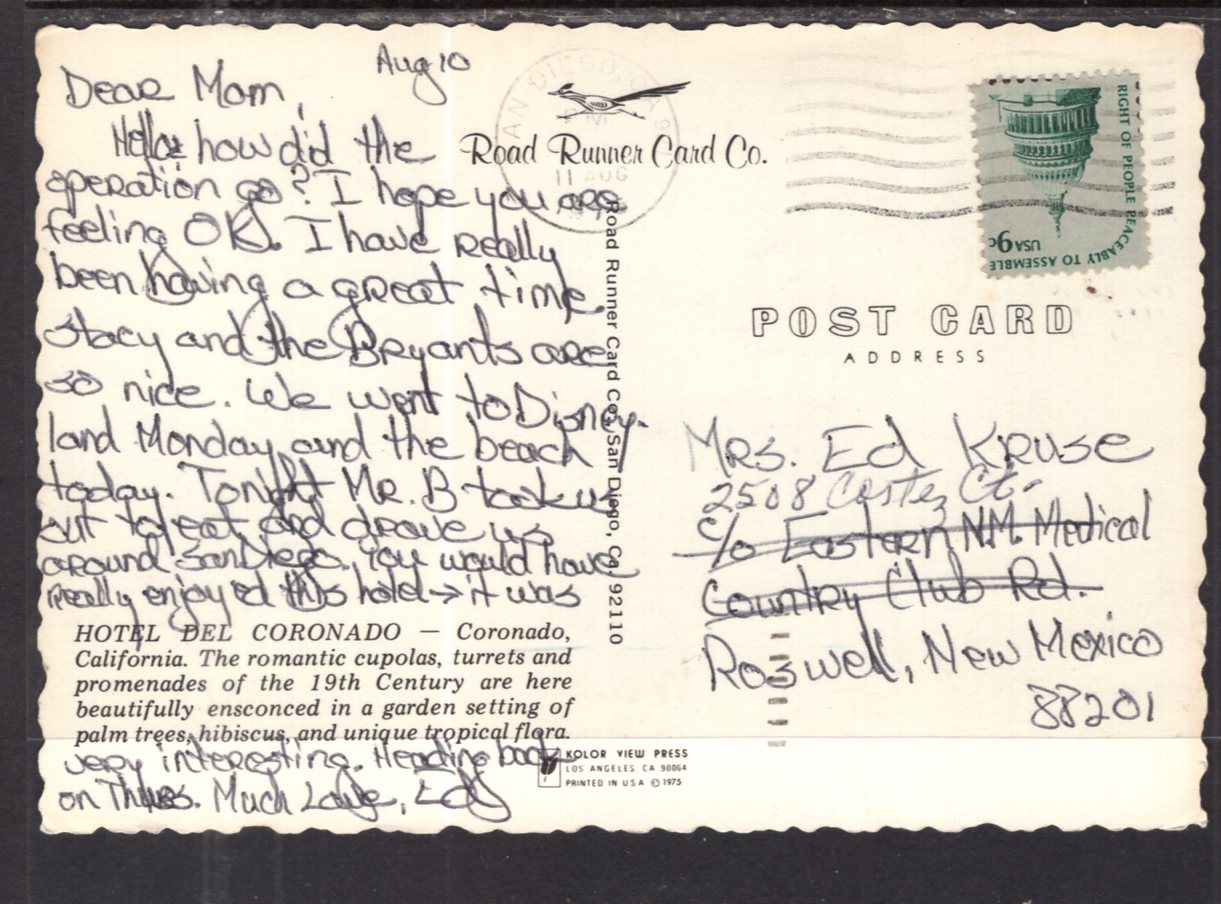 Aug 10
Dear Mom,
Hello how did the
operation go? I hope you are
feeling OK. I have really
been having a great time.
Stacy and the Bryants are
so nice. We went to Disney-
land Monday and the beach
today. Tonight Mr. B took us
out to eat and drove us
around San Diego. You would have
really enjoyed this hotel → it was
HOTEL DEL CORONADO — Coronado,
California. The romantic cupolas, turrets and
promenades of the 19th Century are here
beautifully ensconced in a garden setting of
palm trees, hibiscus, and unique tropical flora.
very interesting. Heading back
on Thurs. Much Love,
Road Runner Card Co.
Road Runner Card Co., San Diego, Ca. 92110
KOLOR VIEW PRESS
LOS ANGELES, CA 90064
PRINTED IN USA © 1975
SAN DIEGO, CA
PM
11 AUG
RIGHT OF PEOPLE PEACEABLY TO ASSEMBLE
USA 9c
POST CARD
ADDRESS
Mrs. Ed Kruse
2508 Ct.
c/o Eastern N.M. Medical
Country Club Rd.
Roswell, New Mexico
88201